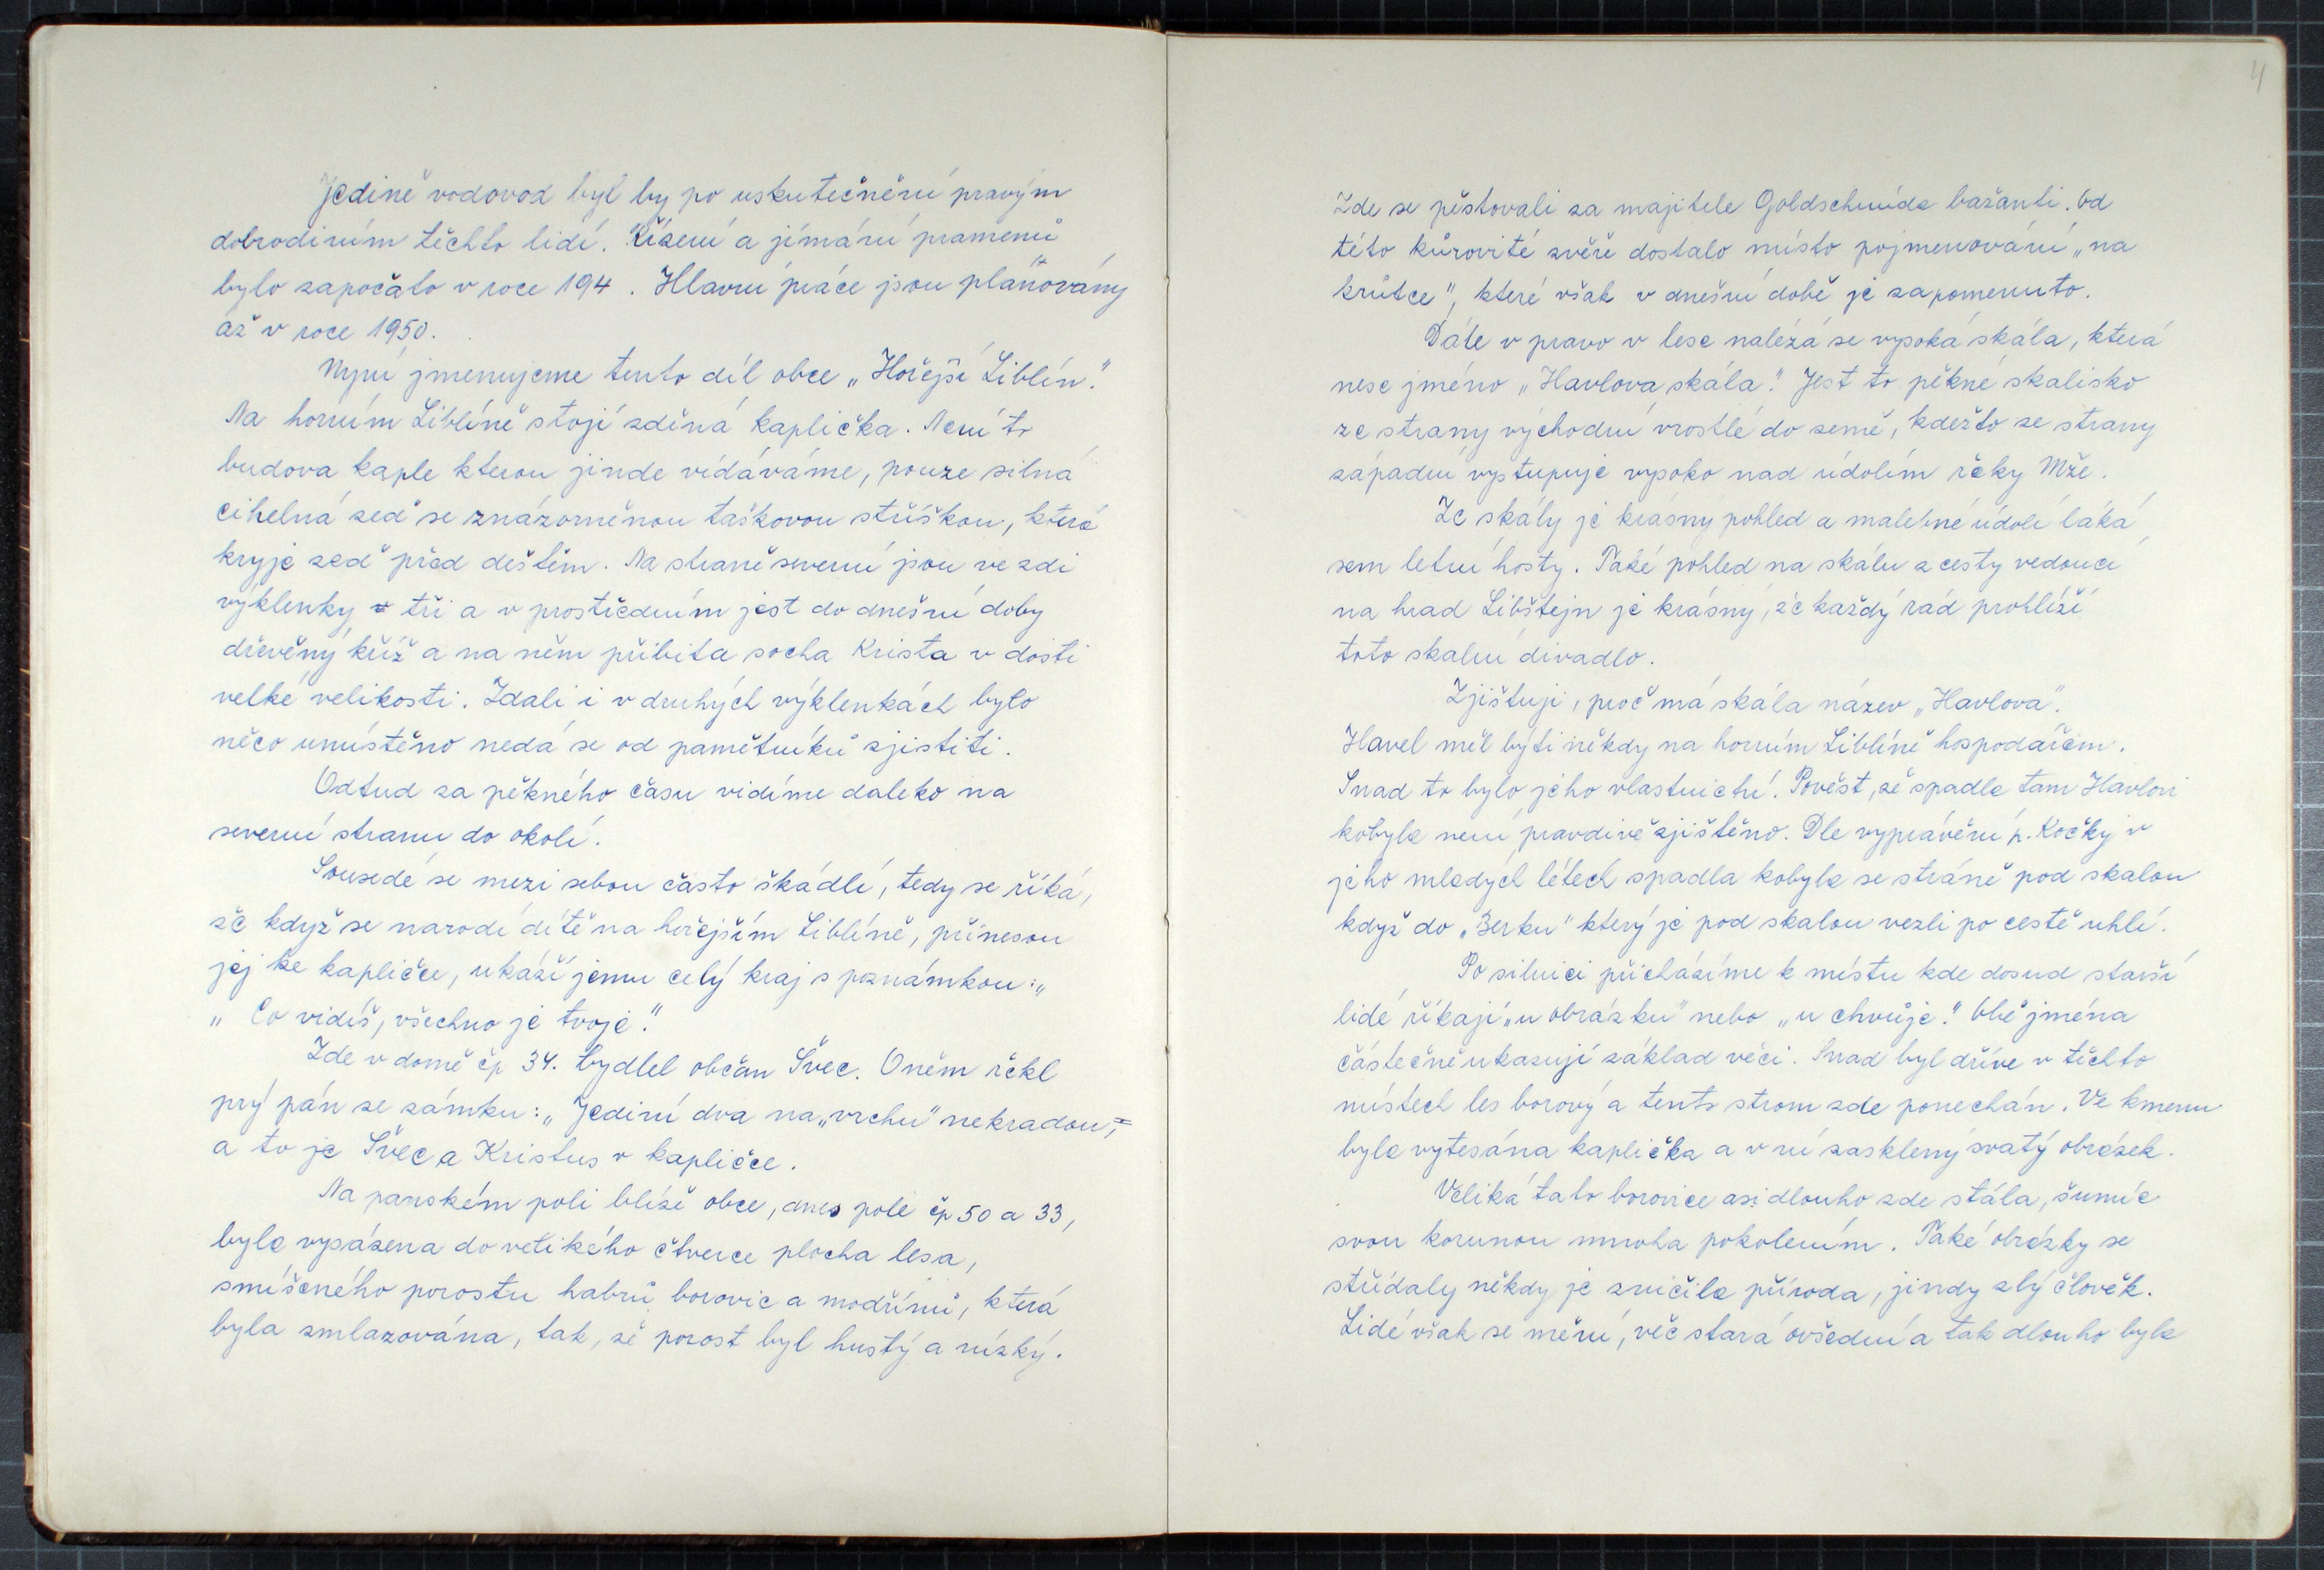 Jedině vodovod byl by po uskutečnění pravým
dobrodiním těchto lidí. Řízení a jímání pramenů
bylo započato v roce 194 . Hlavní práce jsou plánovány
až v roce 1950.
Nyní jmenujeme tento díl obce „Hořejší Liblín."
Na horním Liblíně stojí zděná kaplička. Není to
budova kaple kterou jinde vídáváme, pouze silná
cihelná zeď se znázorněnou taškovou stříškou, která
kryje zeď před deštěm. Na straně severní jsou ve zdi
výklenky tři a v prostředním jest do dnešní doby
dřevěný kříž a na něm přibita socha Krista v dosti
velké velikosti. Zdali i v druhých výklenkách bylo
něco umístěno nedá se od pamětníků zjistiti.
Odtud za pěkného času vidíme daleko na
severní stranu do okolí.
Sousedé se mezi sebou často škádlí, tedy se říká,
že když se narodí dítě na hořejším Liblíně, přinesou
jej ke kapličce, ukáží jemu celý kraj s poznámkou:„
„ Co vidíš, všechno je tvoje."
Zde v domě čp 34. bydlel občan Švec. Oněm řekl
prý pán ze zámku: „Jediní dva na „vrchu" nekradou,=
a to je Švec a Kristus v kapličce.
Na panském poli blíže obce, dnes pole čp 50 a 33,
byla vysázena do velikého čtverce plocha lesa,
smíšeného porostu habrů borovic a modřínů, která
byla zmlazována, tak, že porost byl hustý a nízký.
4
Zde se pěstovali za majitele Goldschmída bažanti. Od
této kůrovité zvěře dostalo místo pojmenování „na
krůtce", které však v dnešní době je zapomenuto.
Dále v pravo v lese nalézá se vysoká skála, která
nese jméno „Havlova skála." Jest to pěkné skalisko
ze strany východní vrostlé do země, kdežto se strany
západní vystupuje vysoko nad údolím řeky Mže.
Ze skály je krásný pohled a malebné údolí láká
sem letní hosty. Také pohled na skálu z cesty vedoucí
na hrad Libštejn je krásný, že každý rád prohlíží
toto skalní divadlo.
Zjištuji, proč má skála název „Havlova".
Havel měl býti někdy na horním Liblíně hospodářem.
Snad to bylo jeho vlastnictví. Pověst, že spadla tam Havlovi
kobyla není pravdivě zjištěno. Dle vyprávění p. Kočky v
jeho mladých létech spadla kobyla se stráně pod skalou
když do „Berku" který je pod skalou vezli po cestě uhlí.
Po silnici přicházíme k místu kde dosud starší
lidé říkají „u obrázku" nebo „u chvůje." Obě jména
částečně ukazují základ věci. Snad byl dříve v těchto
místech les borový a tento strom zde ponechán. Ve kmenu
byla vytesána kaplička a v ní zasklený svatý obrázek.
Veliká tato borovice asi dlouho zde stála, šumíc
svou korunou mnoha pokolením. Také obrázky se
střídaly někdy je zničila příroda, jindy zlý člověk.
Lidé však se mění, věc stará ovšední a tak dlouho byla